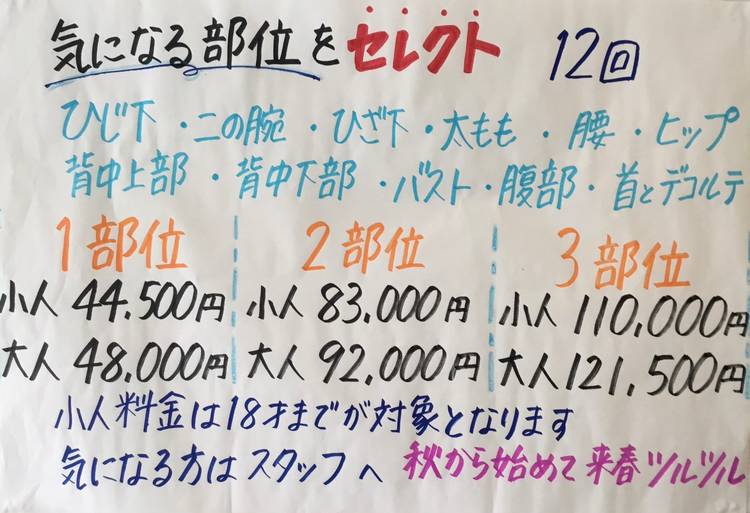 気になる部位をセレクト 12回
ひじ下・二の腕・ひざ下・太もも・腰・ヒップ
背中上部・背中下部・バスト・腹部・首とデコルテ
1部位 2部位 3部位
小人 44.500円 小人 83.000円 小人 110,000円
大人 48,000円 大人 92,000円 大人 121,500円
小人料金は18才までが対象となります
気になる方はスタッフへ 秋から始めて来春ツルツル